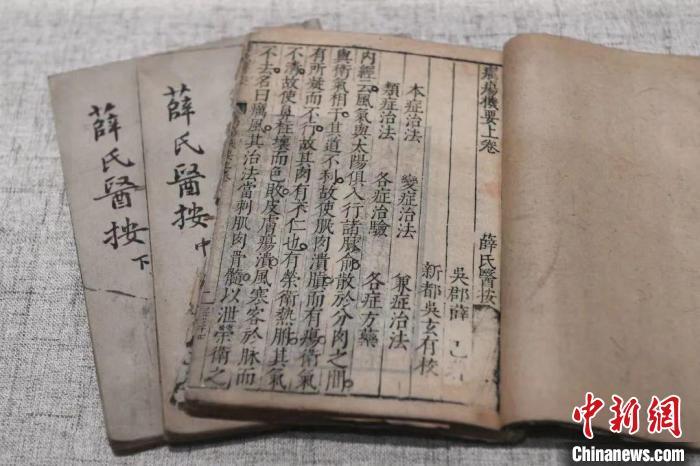 癘瘍機要上卷 薛氏醫按
吳郡薛 己
新都吳玄有校
本症治法 變症治法 兼症治法
類症治法 各症治驗 各症方藥
內經云風氣與太陽俱入行諸脈俞散於分肉之間
與衛氣相干其道不利故使肌肉潰䐜而有瘍衛氣
有所凝而不行故其肉有不仁也有榮衛熱胕其氣
不清故使鼻柱壞而色敗皮膚瘍潰風寒客於脈而
不去名曰癘風其治法當刺肌肉骨髓以泄榮衛之
薛氏醫按 中
薛氏醫按 下
中新网
Chinanews.com